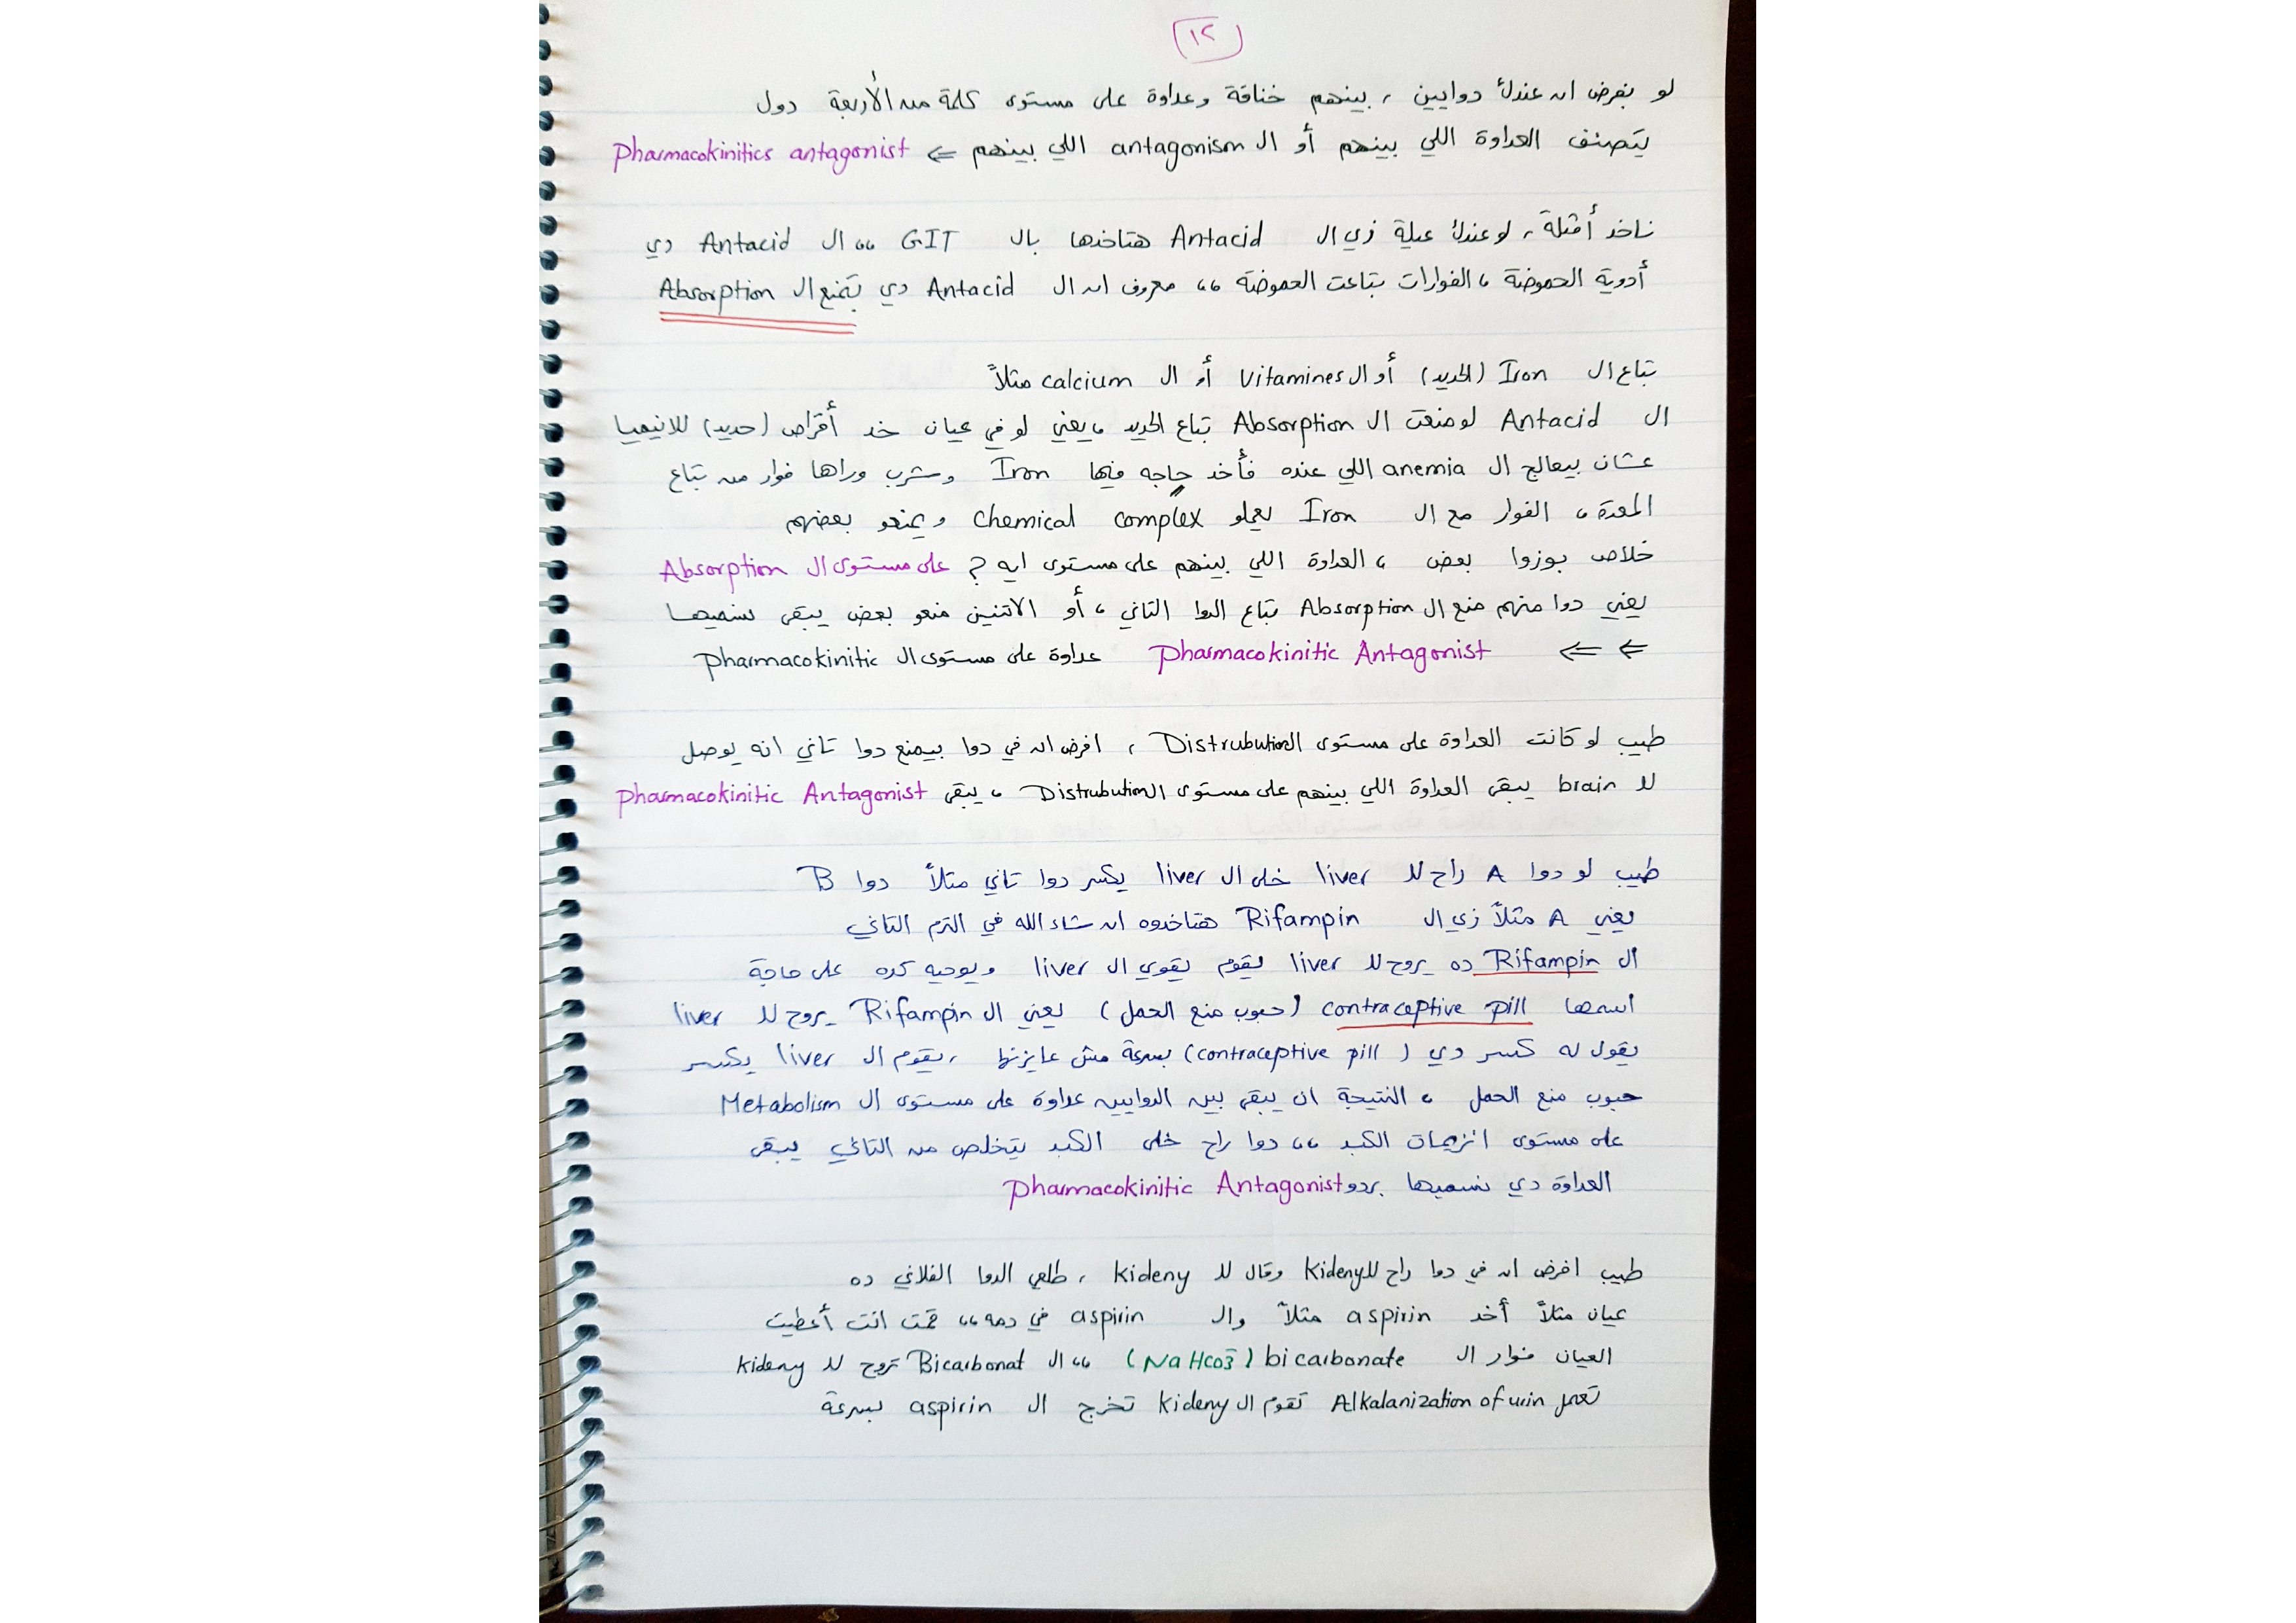 ١٢
لو بفرض ان عندك دوايين ، بينهم خناقة وعداوة على مستوى كلمة من الأربعة دول
يتصنف العداوة اللي بينهم أو ال antagonism اللي بينهم ⇐ pharmacokinitics antagonist
ناخد أمثلة ، لو عندك عيلة زي ال Antacid هتاخدها بال GIT ،، ال Antacid دي
أدوية الحموضة ، الفوارات بتاعت الحموضة ،، معروف ان ال Antacid دي بتمنع ال Absorption
بتاع ال Iron (الحديد) أو ال Vitamines أو ال calcium مثلاً
ال Antacid لو منعت ال Absorption بتاع الحديد ، يعني لو في عيان خد أقراص (حديد) للانيميا
عشان بيعالج ال anemia اللي عنده فأخد حاجه فيها Iron وشرب وراها فوار من بتاع
المعدة ، الفوار مع ال Iron يعملو chemical complex ويمنعو بعضهم
خلاص بوزوا بعض ، العداوة اللي بينهم على مستوى ايه ? على مستوى ال Absorption
يعني دوا منهم منع ال Absorption بتاع الدوا التاني ، أو الاتنين منعو بعض يبقى نسميها
⇐ ⇐ pharmacokinitic Antagonist عداوة على مستوى ال pharmacokinitic
طيب لو كانت العداوة على مستوى ال Distrubution ، افرض ان في دوا بيمنع دوا تاني انه يوصل
لل brain يبقى العداوة اللي بينهم على مستوى ال Distrubution ، يبقى pharmacokinitic Antagonist
طيب لو دوا A راح لل liver خلى ال liver يكسر دوا تاني مثلاً دوا B
يعني A مثلاً زي ال Rifampin هتاخدوه ان شاء الله في الترم التاني
ال Rifampin ده يروح لل liver يقوم يقوي ال liver ويوصيه كده على حاجة
اسمها contraceptive pill (حبوب منع الحمل) يعني ال Rifampin يروح لل liver
يقول له كسر دي (contraceptive pill) بسرعة مش عايزنها ، يقوم ال liver يكسر
حبوب منع الحمل ، النتيجة ان يبقى بين الدوايين عداوة على مستوى ال Metabolism
على مستوى انزيمات الكبد ،، دوا راح خلى الكبد يتخلص من التاني يبقى
العداوة دي نسميها بردو pharmacokinitic Antagonist
طيب افرض ان في دوا راح لل kideny وقال لل kideny ، طلعي الدوا الفلاني ده
عيان مثلاً أخد aspirin مثلاً وال aspirin في دمه ،، قمت انت أعطيت
العيان فوار ال bicarbonate (NaHco3̄) ،، ال Bicarbonat تروح لل kideny
تعمل Alkalanization of urin تقوم ال kideny تخرج ال aspirin بسرعة